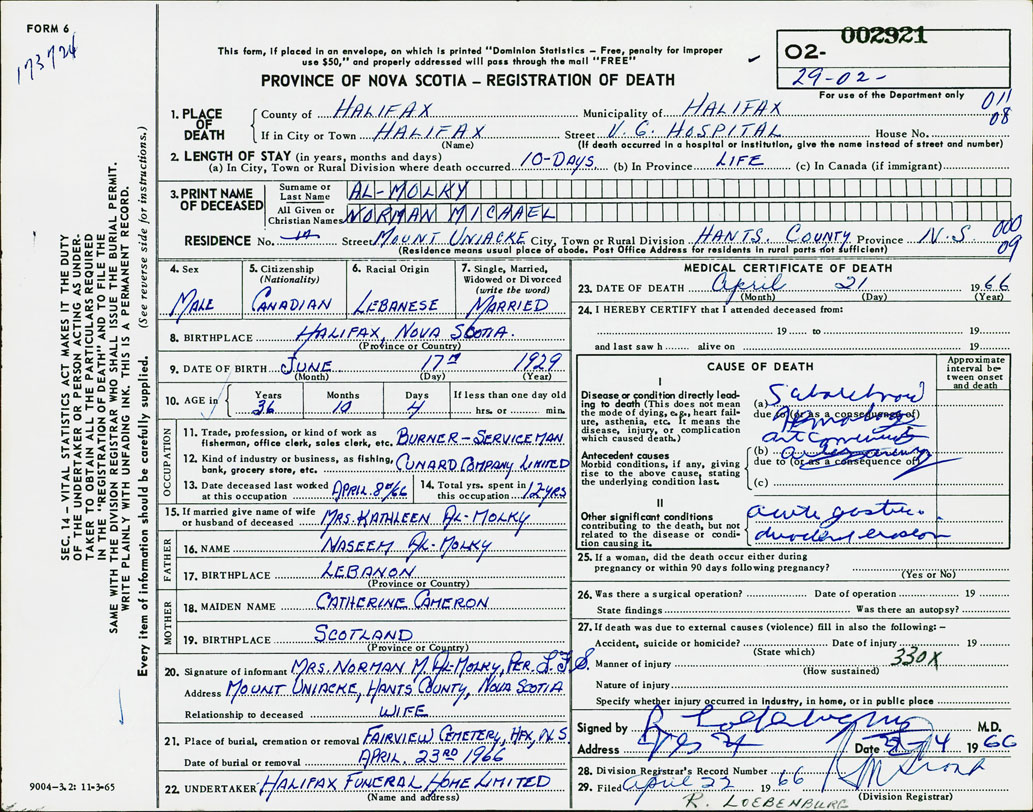 FORM 6
173724
002921
This form, if placed in an envelope, on which is printed "Dominion Statistics – Free, penalty for improper
use $50," and properly addressed will pass through the mail "FREE"
O2-
29-02-
PROVINCE OF NOVA SCOTIA – REGISTRATION OF DEATH
For use of the Department only
011
08
1. PLACE OF DEATH
County of HALIFAX Municipality of HALIFAX
If in City or Town HALIFAX Street V. G. HOSPITAL House No.
(Name) (If death occurred in a hospital or institution, give the name instead of street and number)
2. LENGTH OF STAY (in years, months and days)
(a) In City, Town or Rural Division where death occurred 10-DAYS (b) In Province LIFE (c) In Canada (if immigrant)
3. PRINT NAME OF DECEASED
Surname or Last Name AL-MOLKY
All Given or Christian Names NORMAN MICHAEL
RESIDENCE No. Street MOUNT UNIACKE City, Town or Rural Division HANTS. COUNTY Province N.S 000
09
(Residence means usual place of abode. Post Office Address for residents in rural parts not sufficient)
4. Sex
MALE
5. Citizenship
(Nationality)
CANADIAN
6. Racial Origin
LEBANESE
7. Single, Married,
Widowed or Divorced
(write the word)
MARRIED
8. BIRTHPLACE HALIFAX, NOVA SCOTIA.
(Province or Country)
9. DATE OF BIRTH JUNE 17th 1929
(Month) (Day) (Year)
10. AGE in
Years Months Days If less than one day old
36 10 4 hrs. or min.
OCCUPATION
11. Trade, profession, or kind of work as
fisherman, office clerk, sales clerk, etc. BURNER-SERVICEMAN
12. Kind of industry or business, as fishing,
bank, grocery store, etc. CUNARD COMPANY LIMITED
13. Date deceased last worked
at this occupation APRIL 8th/66
14. Total yrs. spent in
this occupation 12-YRS
15. If married give name of wife
or husband of deceased MRS. KATHLEEN AL-MOLKY
FATHER
16. NAME NASEEM AL-MOLKY
17. BIRTHPLACE LEBANON
(Province or Country)
MOTHER
18. MAIDEN NAME CATHERINE CAMERON
19. BIRTHPLACE SCOTLAND
(Province or Country)
20. Signature of informant MRS. NORMAN M. AL-MOLKY, PER. J. F. S
Address MOUNT UNIACKE, HANTS COUNTY, NOVA SCOTIA
Relationship to deceased WIFE
21. Place of burial, cremation or removal FAIRVIEW CEMETERY, HFX, N.S.
Date of burial or removal APRIL. 23RD 1966
22. UNDERTAKER HALIFAX FUNERAL HOME LIMITED
(Name and address)
MEDICAL CERTIFICATE OF DEATH
23. DATE OF DEATH April 21 1966
(Month) (Day) (Year)
24. I HEREBY CERTIFY that I attended deceased from:
19 to 19
and last saw h alive on 19
CAUSE OF DEATH
Approximate
interval be-
tween onset
and death
I
Disease or condition directly lead-
ing to death (This does not mean
the mode of dying, e.g., heart fail-
ure, asthenia, etc. It means the
disease, injury, or complication
which caused death.)
(a)
due to (or as a consequence of)
Antecedent causes
Morbid conditions, if any, giving
rise to the above cause, stating
the underlying condition last.
(b)
due to (or as a consequence of)
(c)
II
Other significant conditions
contributing to the death, but not
related to the disease or condi-
tion causing it.
acute gastric
duodenal erosion
25. If a woman, did the death occur either during
pregnancy or within 90 days following pregnancy?
(Yes or No)
26. Was there a surgical operation? Date of operation 19
State findings Was there an autopsy?
27. If death was due to external causes (violence) fill in also the following: –
Accident, suicide or homicide? Date of injury 19
(State which)
Manner of injury 330X
(How sustained)
Nature of injury
Specify whether injury occurred in industry, in home, or in public place
Signed by M.D.
Address Date 1966
28. Division Registrar's Record Number
29. Filed April 22 1966
(Division Registrar)
R. LOEBENBURG
SEC. 14 – VITAL STATISTICS ACT MAKES IT THE DUTY
OF THE UNDERTAKER OR PERSON ACTING AS UNDER-
TAKER TO OBTAIN ALL THE PARTICULARS REQUIRED
IN THE "REGISTRATION OF DEATH" AND TO FILE THE
SAME WITH THE DIVISION REGISTRAR WHO SHALL ISSUE THE BURIAL PERMIT.
WRITE PLAINLY WITH UNFADING INK. THIS IS A PERMANENT RECORD.
Every item of information should be carefully supplied. (See reverse side for instructions.)
9004-3.2: 11-3-65